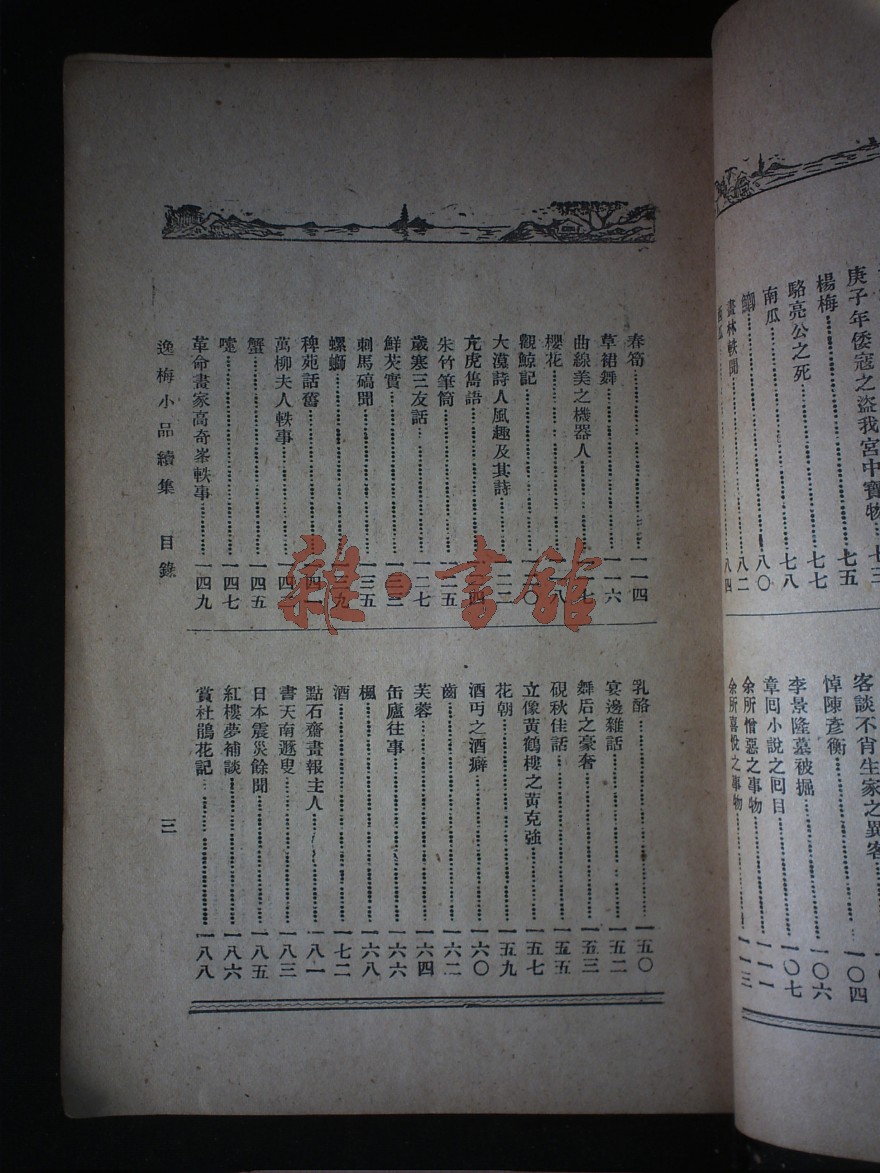 庚子年倭寇之盜我宮中寶物
楊梅 七五
駱亮公之死 七七
南瓜 七八
八〇
畫林軼聞 八二
八四
客談不肖生家之異客
悼陳彥衡 一〇四
李景隆墓被掘 一〇六
章回小說之回目 一〇七
余所憎惡之事物 一一一
余所喜悅之事物 一一三
春筍 一一四
草裙舞 一一六
曲線美之機器人
櫻花
觀鯨記
大漠詩人風趣及其詩 一二二
亢虎雋語
朱竹筆筒
歲寒三友話 一二七
鮮芡實
刺馬碻聞 一三五
螺螄 一三九
稗苑話舊 一四一
萬柳夫人軼事
蟹 一四五
嚏 一四七
革命畫家高奇峯軼事 一四九
乳酪 一五〇
宴邊雜話 一五二
舞后之豪奢 一五三
硯秋佳話 一五五
立像黃鶴樓之黃克強 一五七
花朝 一五九
酒丐之酒癖 一六〇
齒 一六二
芙蓉 一六四
缶廬往事 一六六
楓 一六八
酒 一七二
點石齋畫報主人 一八一
書天南遯叟 一八三
日本震災餘聞 一八五
紅樓夢補談 一八六
賞杜鵑花記 一八八
逸梅小品續集 目錄 三
雜·書館